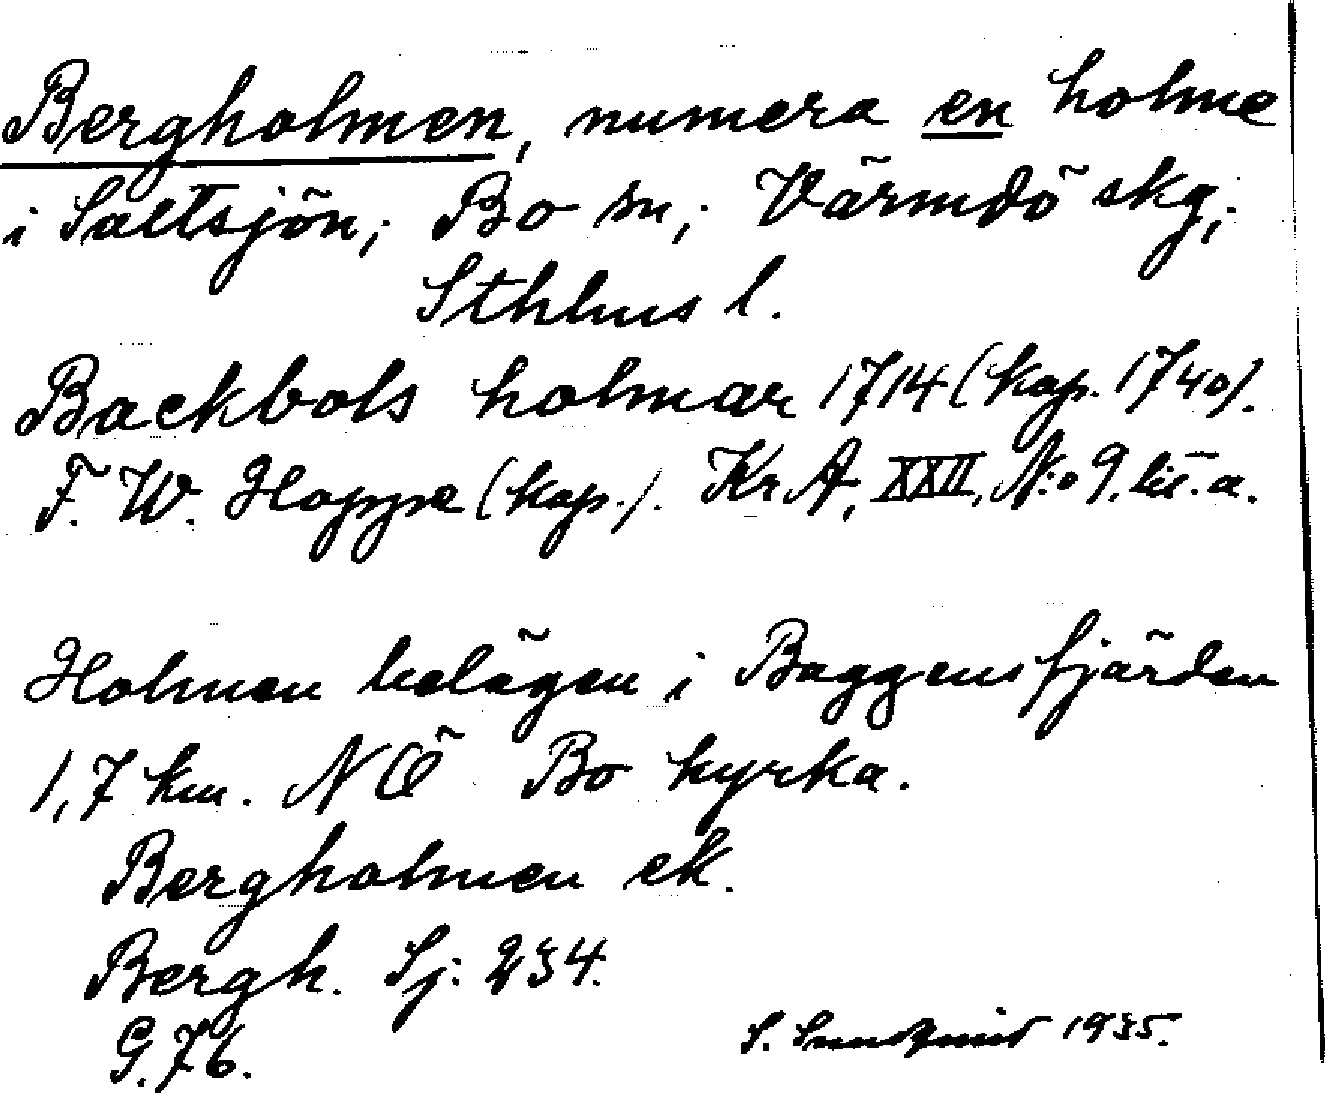 Bergholmen, numera en holme
i Saltsjön; Bo sn; Värmdö skg;
Sthlms l.
Backbols holmar 1714 (kop. 1740).
F. W. Hoppe (kop.). Kr A, XXII, N:o 9. lit. a.
Holmen belägen i Baggensfjärden
1,7 km. NÖ Bo kyrka.
Bergholmen ek.
Bergh. Sj: 234.
G. 76.
S. Sundquist 1935.